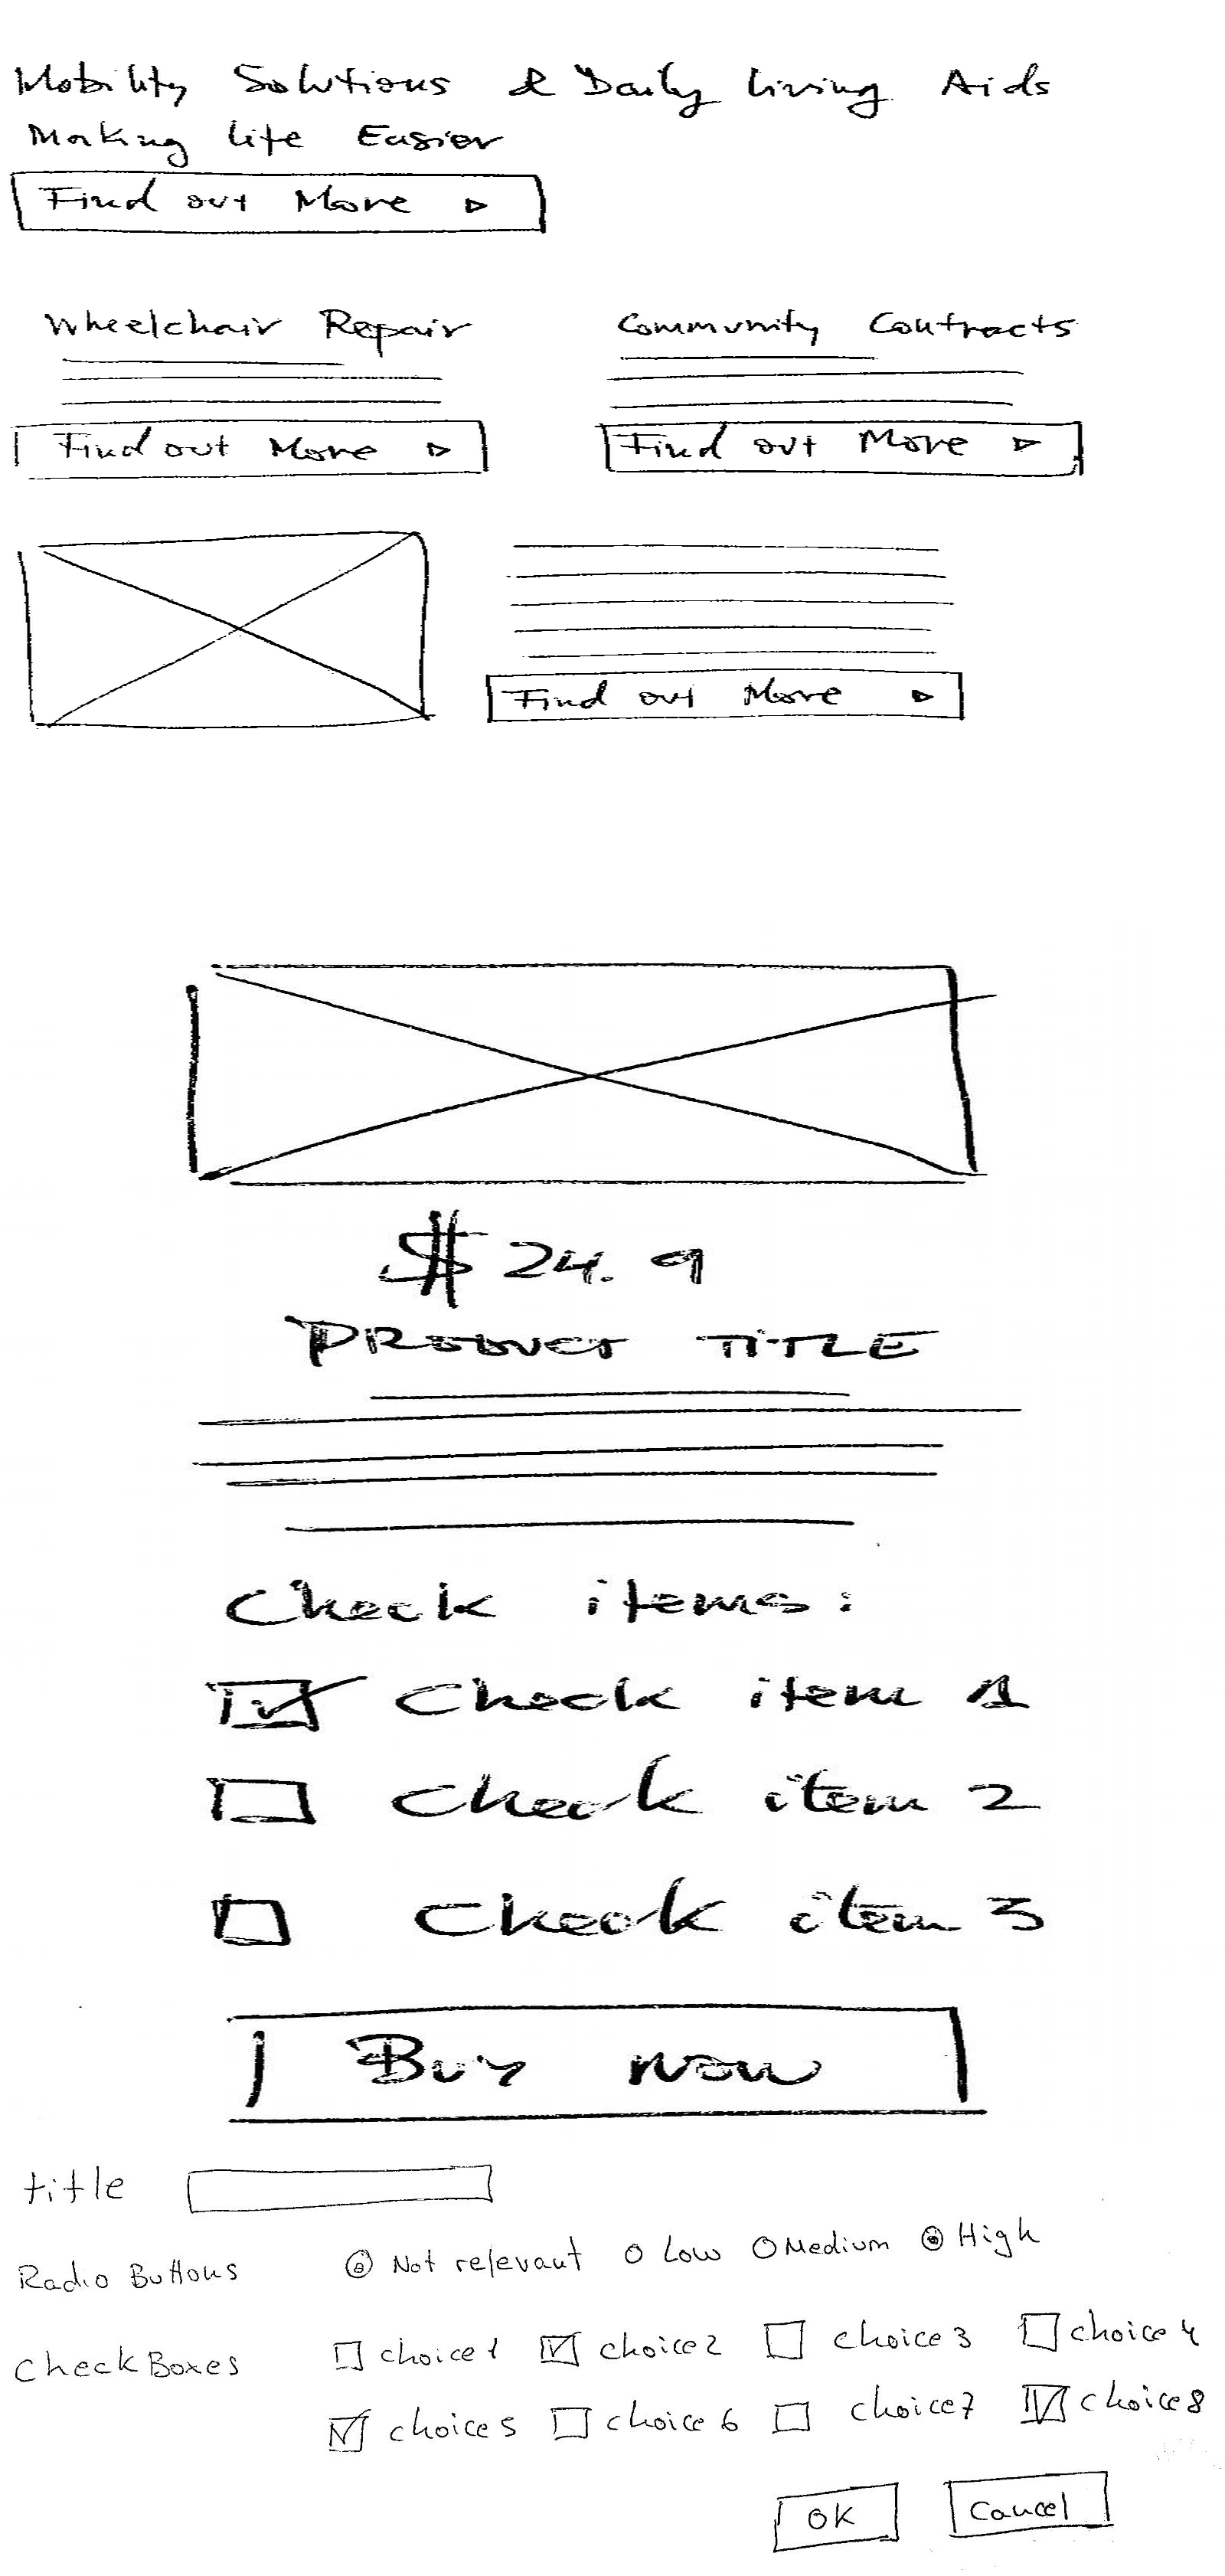 Mobility Solutions & Daily Living Aids
Making life Easier
Find out More
Wheelchair Repair
Community Contracts
Find out More
Find out More
Find out More
$ 24.9
PRODUCT TITLE
Check items:
Check item 1
Check item 2
Check item 3
Buy now
title
Radio Buttons Not relevant Low Medium High
CheckBoxes choice 1 choice 2 choice 3 choice 4
choice 5 choice 6 choice 7 choice 8
OK Cancel